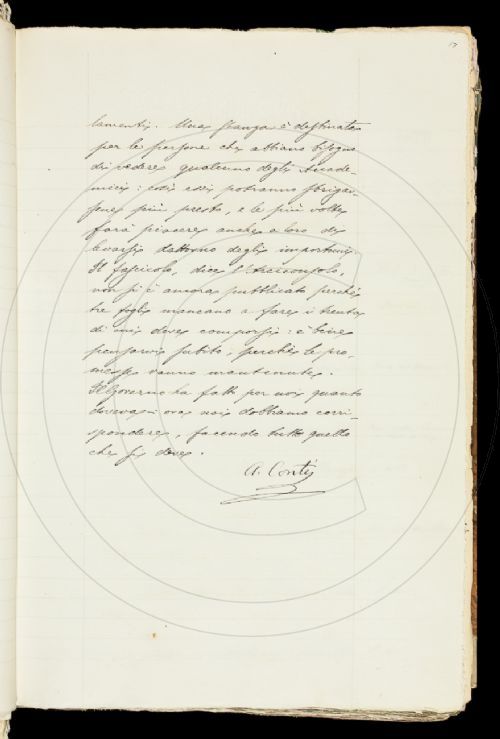 17
lamenti. Una stanza è destinata
per le persone che abbiano bisogno
di vedere qualcuno degli Accade-
mici: così essi potranno sbrigar-
sene più presto, e le più volte
farà piacere anche a loro di
levarsi dattorno degli importuni.
Il fascicolo, dice l'Arciconsolo,
non si è ancora pubblicato perchè
tre fogli mancano a fare i trenta
di cui deve comporsi: è bene
pensarvi subito, perchè le pro-
messe vanno mantenute.
Il Governo ha fatto per noi quanto
doveva: ora noi dobbiamo corri-
spondere, facendo tutto quello
che si deve.
A. Conti